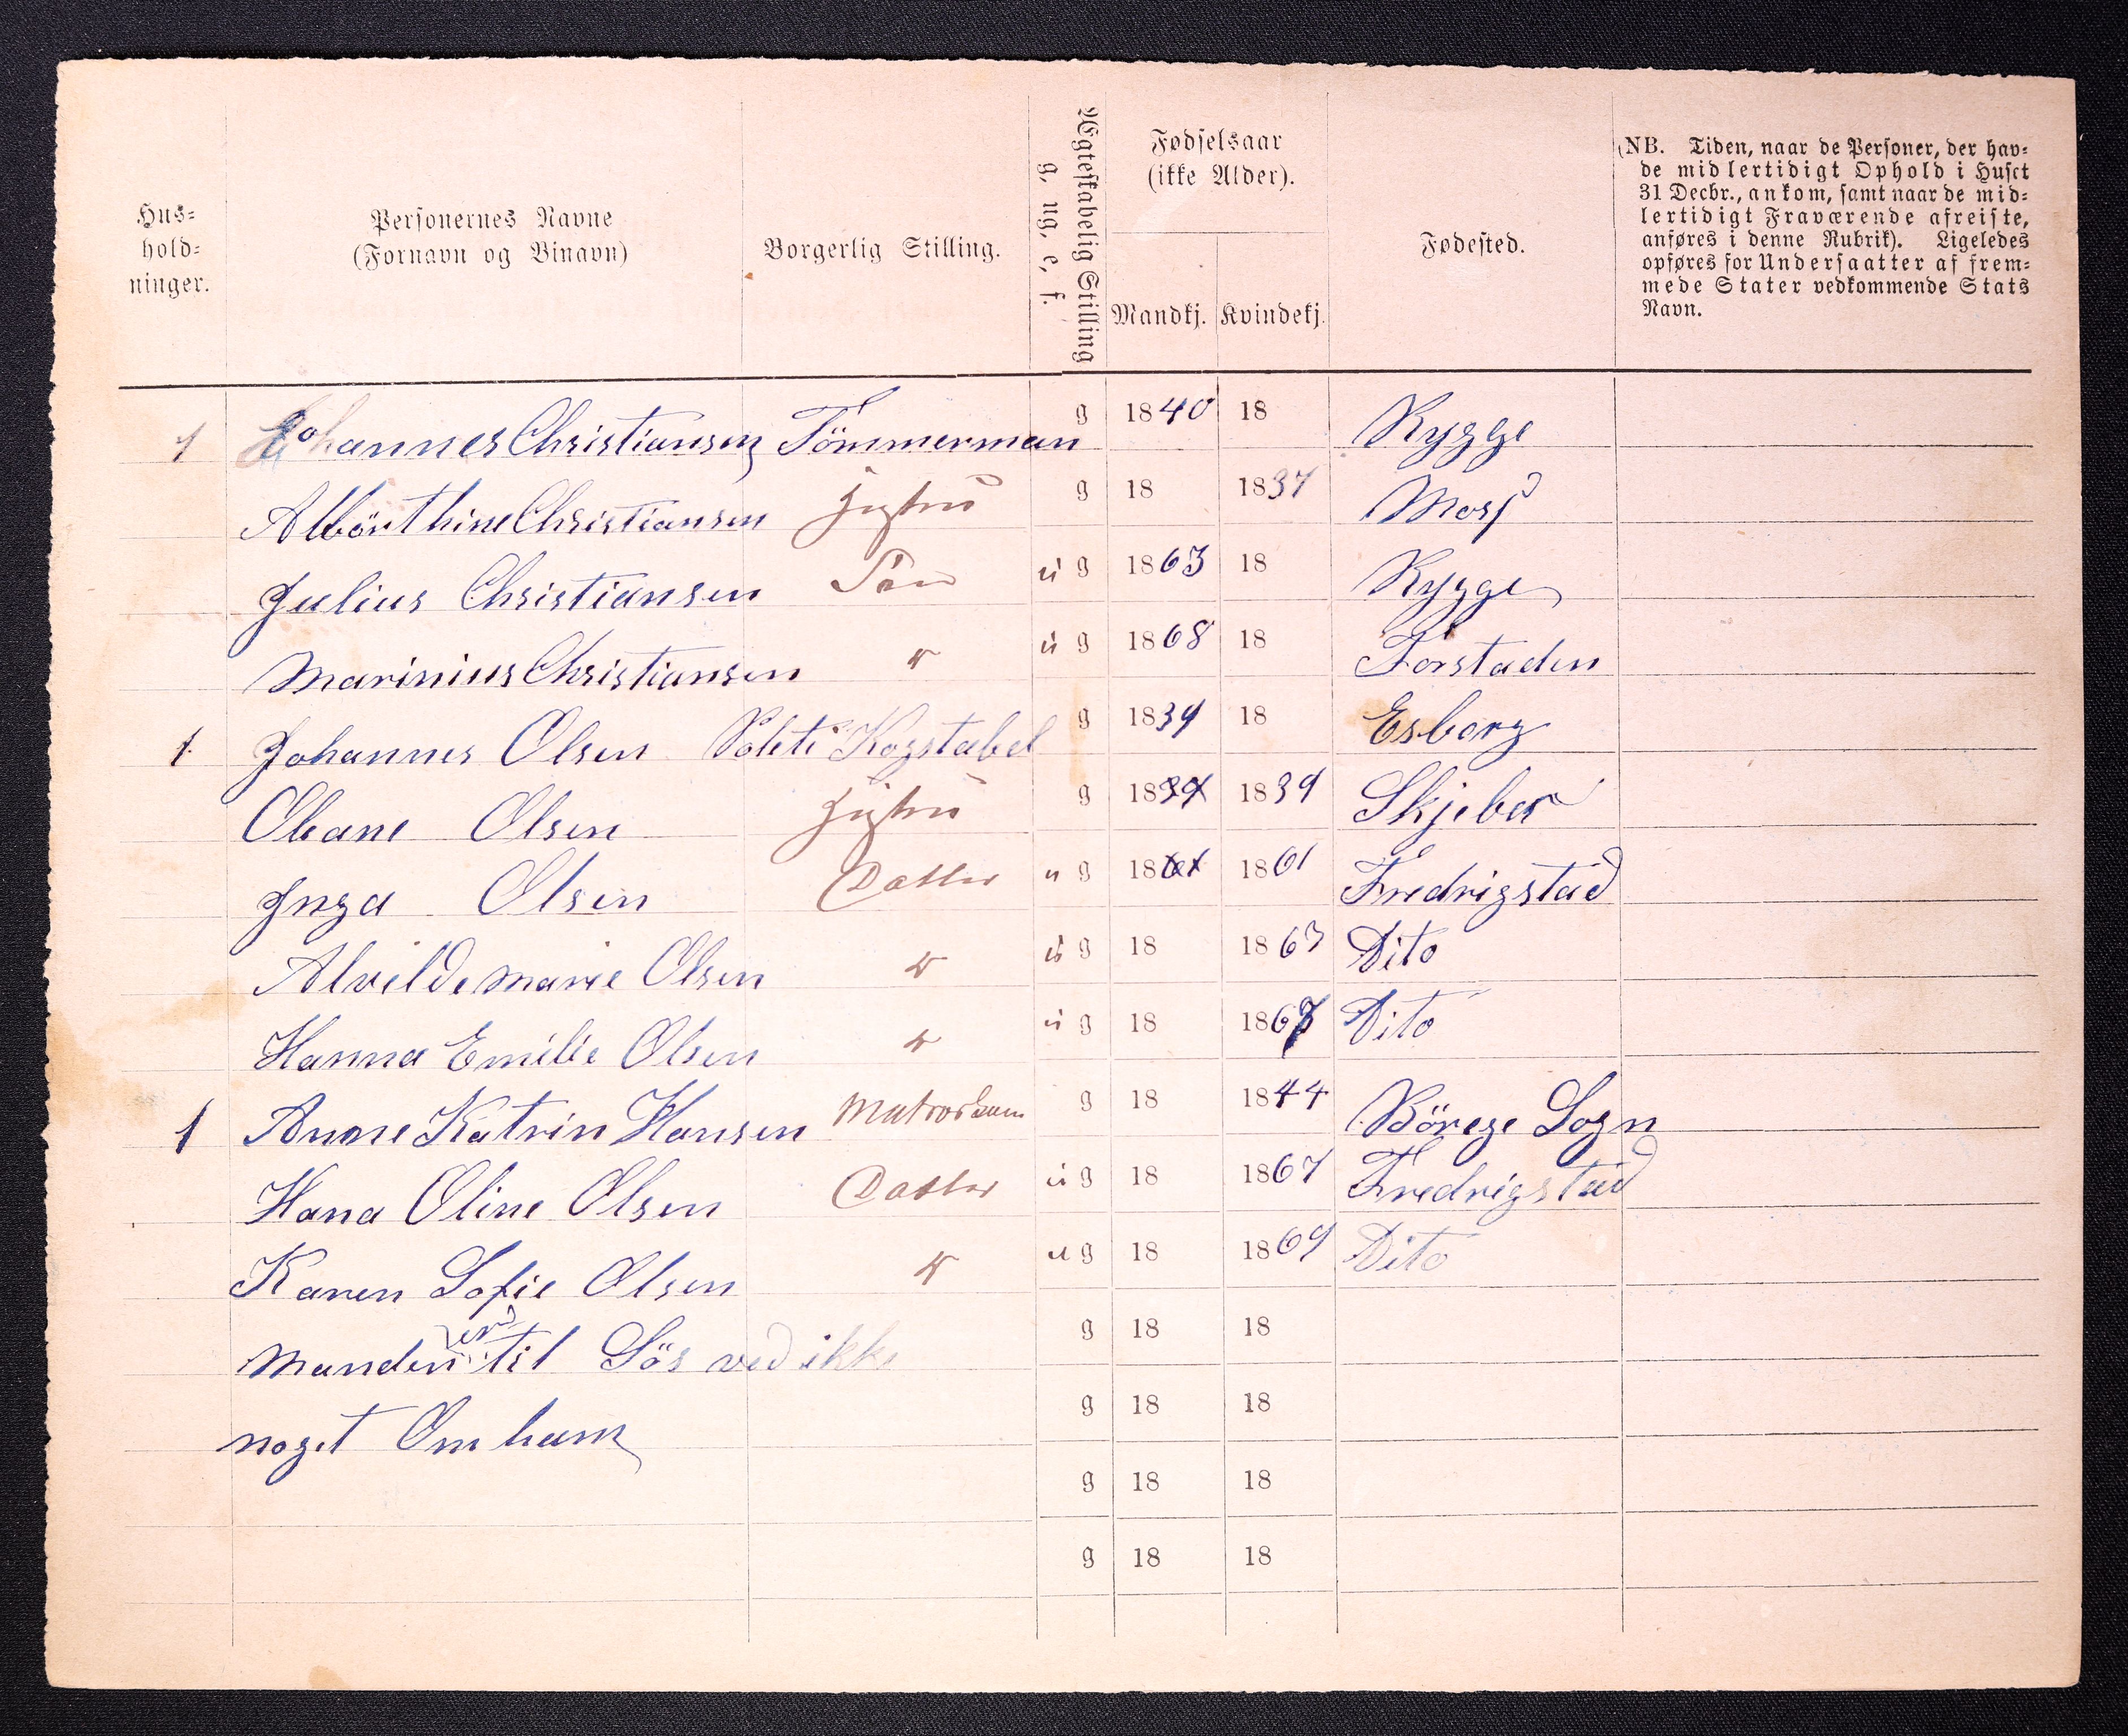 Hus-
hold-
ninger.
Personernes Navne
(Fornavn og Binavn)
Borgerlig Stilling.
Ægteskabelig Stilling
g, ug, e, f.
Fødselsaar
(ikke Alder).
Mandkj. Kvindekj.
Fødested.
(NB. Tiden, naar de Personer, der hav-
de midlertidigt Ophold i Huset
31 Decbr., ankom, samt naar de mid-
lertidigt Fraværende afreiste,
anføres i denne Rubrik). Ligeledes
opføres for Undersaatter af frem-
mede Stater vedkommende Stats
Navn.
1 Johannes Christiansen Tömmerman g 1840 18 Rygge
Albörthine Christiansen g 18 1837 Moss
Julius Christiansen Sön ug 1863 18 Rygge
Marinius Christiansen " ug 1868 18 Forstaden
1 Johannes Olsen Politi Kogstabel g 1839 18 Esborg
Oleane Olsen g 1839 1839 Skjeber
Inga Olsen Datter ug 1861 1861 Fredrigstad
Alvilde Marie Olsen " ug 18 1863 Dito
Hanna Emilie Olsen " ug 18 1867 Dito
1 Anne Katrin Hansen g 18 1844 Börge Sogn
Hana Oline Olsen Datter ug 18 1867 Fredrigstad
Karen Sofie Olsen " ug 18 1869 Dito
Manden er til Sös ved ikke g 18 18
noget Om ham g 18 18
g 18 18
g 18 18